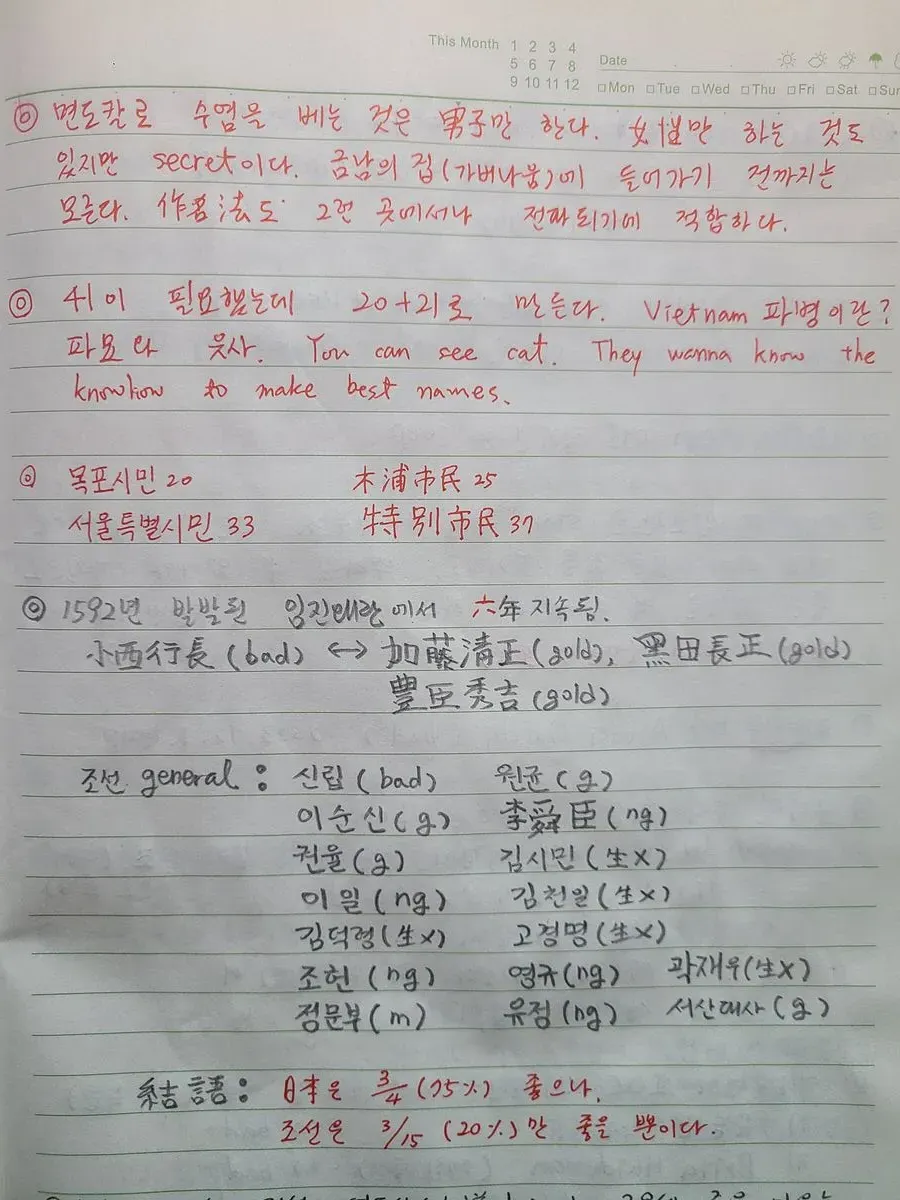 This Month 1 2 3 4
5 6 7 8
9 10 11 12
Date
□Mon □Tue □Wed □Thu □Fri □Sat □Sun
◎ 면도칼로 수염을 베는 것은 男子만 한다. 女性만 하는 것도
있지만 secret이다. 금남의 집(가버나움)에 들어가기 전까지는
모른다. 作名法도 그런 곳에서나 전파되기에 적합하다.
◎ 41이 필요했는데 20+21로 만든다. Vietnam 파병이란?
파묘와 웃사. You can see cat. They wanna know the
knowhow to make best names.
◎ 목포시민 20 木浦市民 25
서울특별시민 33 特別市民 37
◎ 1592년 발발된 임진왜란에서 六年 지속됨.
小西行長 (bad) ↔ 加藤淸正(gold), 黑田長正(gold)
豊臣秀吉(gold)
조선 general : 신립 (bad) 원균(g)
이순신(g) 李舜臣(ng)
권율(g) 김시민(生X)
이일(ng) 김천일(生X)
김덕령(生X) 고경명(生X)
조헌(ng) 영규(ng) 곽재우(生X)
정문부(m) 유정(ng) 서산대사(g)
結語: 日本은 3/4 (75%) 좋으나,
조선은 3/15 (20%)만 좋을 뿐이다.